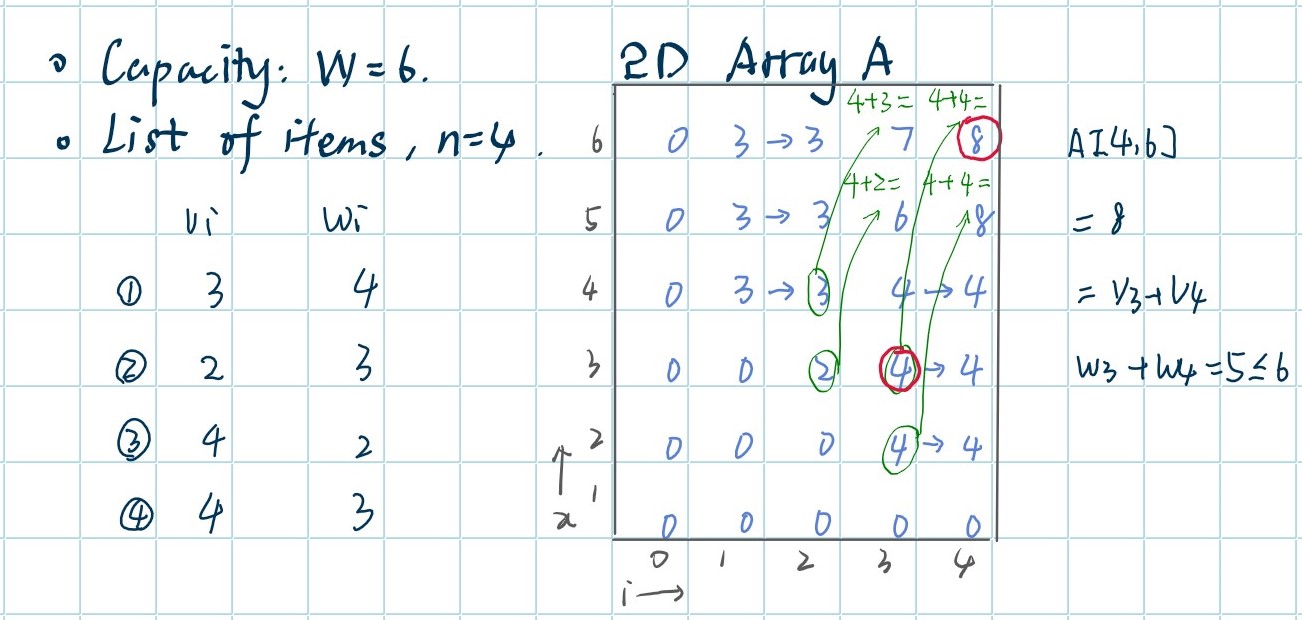 • Capacity: W=6.
• List of items, n=4.
vi wi
① 3 4
② 2 3
③ 4 2
④ 4 3
2D Array A
4+3= 4+4=
6 0 3 → 3 7 8
4+2= 4+4=
5 0 3 → 3 6 8
4 0 3 → 3 4 → 4
3 0 0 2 4 → 4
2 0 0 0 4 → 4
↑ 1
x 0 0 0 0 0
0 1 2 3 4
i →
A[4,6]
= 8
= V3+V4
W3+W4=5≤6